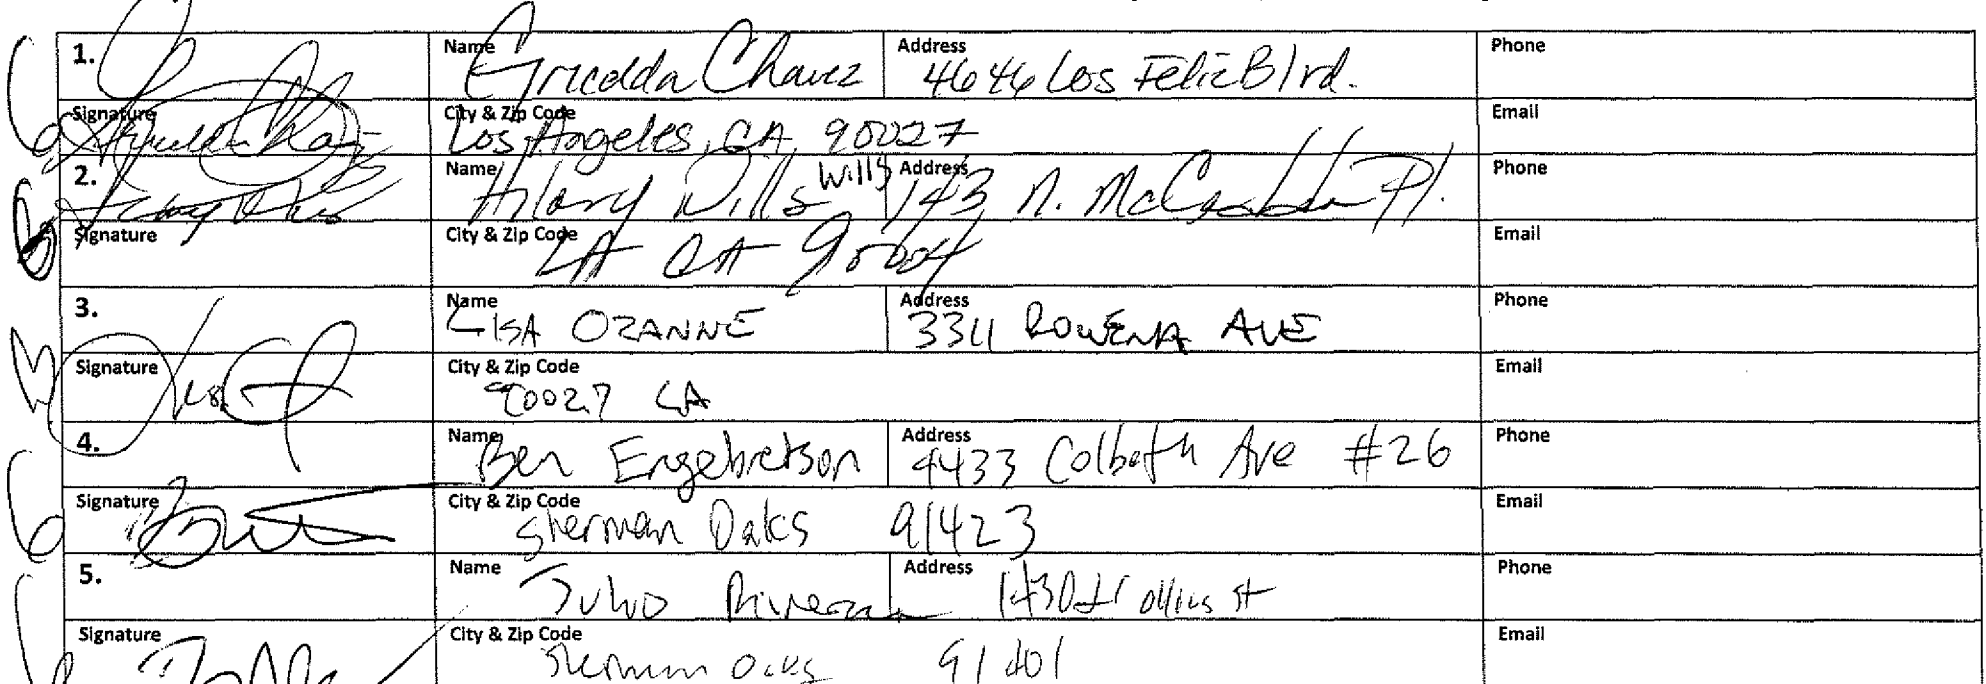 1. Name Gricelda Chavez Address 4646 Los Feliz Blvd. Phone
Signature City & Zip Code Los Angeles, CA 90027 Email
2. Name Hilary Wills Wills Address 143 N. McCadden Pl. Phone
Signature City & Zip Code LA CA 90004 Email
3. Name LISA OZANNE Address 3311 ROWENA AVE Phone
Signature City & Zip Code 90027 LA Email
4. Name Ben Engebretson Address 4433 Colbath Ave #26 Phone
Signature City & Zip Code Sherman Oaks 91423 Email
5. Name Julio Rivera Address St Phone
Signature City & Zip Code Sherman Oaks 91401 Email